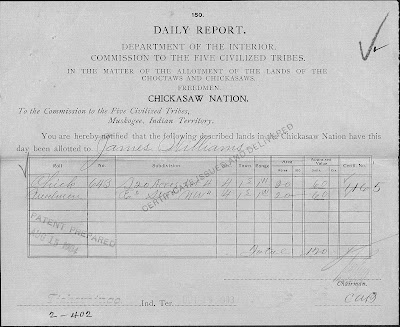 150.
DAILY REPORT.
DEPARTMENT OF THE INTERIOR,
COMMISSION TO THE FIVE CIVILIZED TRIBES.
IN THE MATTER OF THE ALLOTMENT OF THE LANDS OF THE
CHOCTAWS AND CHICKASAWS.
FREEDMEN.
CHICKASAW NATION.
To the Commission to the Five Civilized Tribes,
Muskogee, Indian Territory.
You are hereby notified that the following described lands in the Chickasaw Nation have this
day been allotted to James Williams
CERTIFICATE ISSUED AND DELIVERED
Roll No. Subdivision Sec. Town Range Area Appraised Value Certif. No.
Chick 643 4
Freedmen
PATENT PREPARED
Total 120
Chairman.
Tishomingo Ind. Ter.
2-402